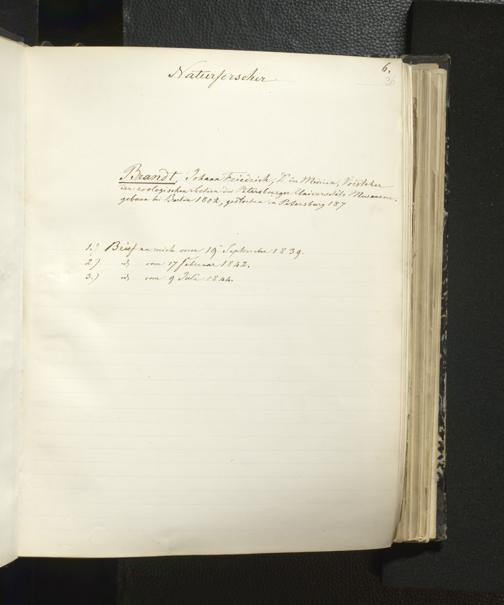 6.
36
Naturforscher
Brandt, Johann Friedrich, Dr. der Medicin, Vorsteher
der zoologischen Section des Petersburger Universitäts Museums,
geboren in Berlin 1802, gestorben in Petersburg 187
1.) Brief an mich vom 19 September 1839.
2.) id, vom 17 Februar 1842.
3.) id, vom 9 Julii 1844.